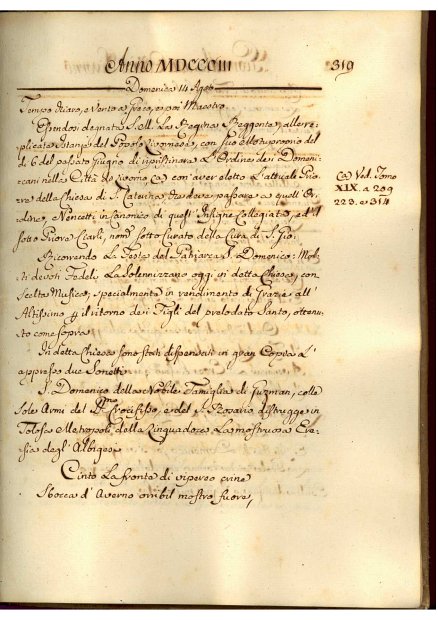 Anno MDCCCIII
319
Domenica 14 Agos.
Tempo chiaro, e Vento a Greco, e poi Maestro.
Essendosi degnata S. M. La Regina Reggente, alle re-
plicate Istanze del Popolo Livornese, con suo Motuproprio del
dì 6 del passato Giugno di ripristinare L'Ordine dei Domeni-
cani nella Città di Livorno (a) con aver eletto L'attuale Cu-
rato della Chiesa di S. Caterina, da dover passare a quell' Or-
dine, Nencetti in Canonico di quest' Insigne Collegiata, ed il
sotto Curato della Cura di S. Gio:
(a) Ved. Tomo
XIX. a 209
223. e 314
Ricorrendo La Festa del Patriarca S. Domenico: Mol-
ti devoti Fedeli La Solennizzano oggi in detta Chiesa, con
Scelta Musica, specialmente in rendimento di Grazie all'
Altissimo il ritorno dei Figli del prelodato Santo, ottenu-
to come sopra.
In detta Chiesa sono stati dispensati in gran Copia L'
appresso due Sonetti
S. Domenico della Nobile Famiglia di Guzman, colle
Sole Armi del Crocifisso, e del S. Rosario distrugge in
Tolosa Metropoli della Linguadoca La mostruosa Ere-
sia degl' Albigesi
Cinto La fronte di vipereo crine
Sbocca d' Averno orribil mostro fuore,